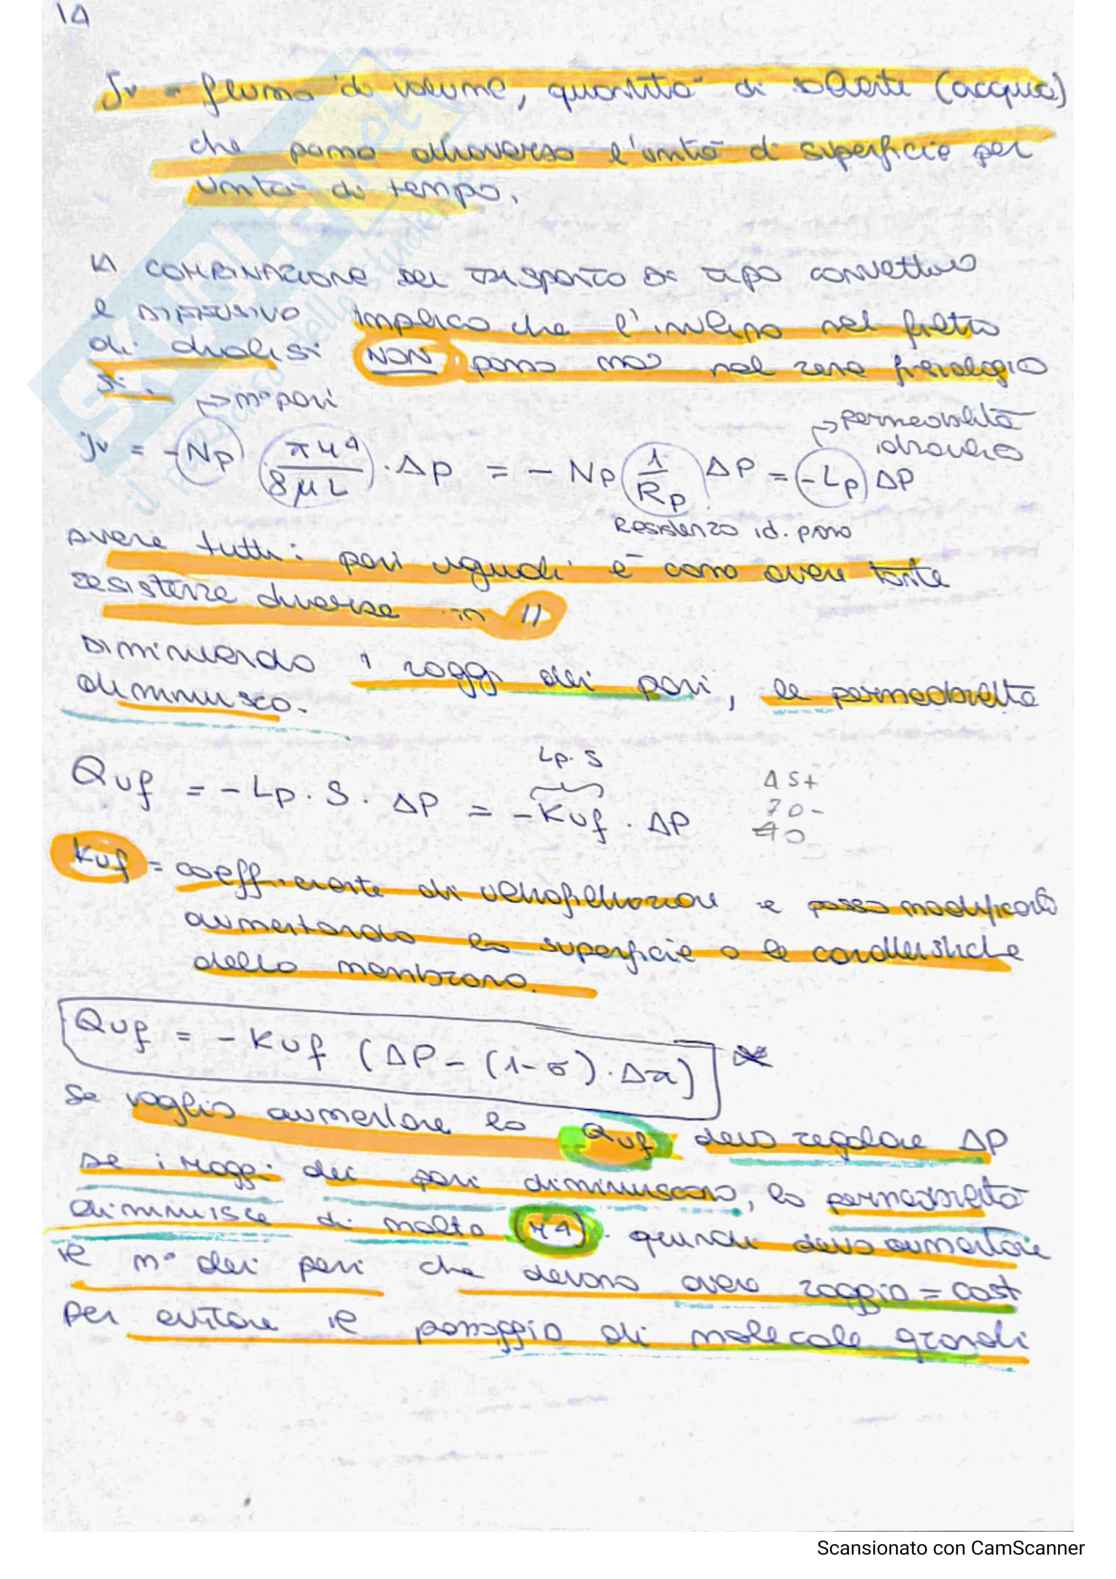 14
Jv = flusso di volume, quantità di solvente (acqua)
che passa attraverso l'unità di superficie per
unità di tempo.
LA COMBINAZIONE DEL TRASPORTO DI TIPO CONVETTIVO
E DIFFUSIVO implica che l'inulina nel filtro
di dialisi NON passa ma nel rene fisiologico
si.
→ n° pori
→ permeabilità
idraulica
Jv = -Np (πr⁴/8μL) · ΔP = - Np (1/Rp) ΔP = -Lp ΔP
Resistenza id. poro
avere tutti i pori uguali è come avere tante
resistenze diverse in //
Diminuendo i raggi dei pori, le permeabilità
diminuisco.
Lp · S
Quf = -Lp · S · ΔP = -Kuf · ΔP
Kuf = coefficiente di ultrafiltrazione e posso modificarlo
aumentando la superficie o le caratteristiche
della membrana.
Quf = - Kuf (ΔP - (1-σ) · Δπ) *
Se voglio aumentare la Quf devo regolare ΔP
se i raggi dei pori diminuiscono, la permeabilità
diminuisce di molto (r4) quindi devo aumentare
il n° dei pori che devono avere raggio = cost
per evitare il passaggio di molecole grandi
Scansionato con CamScanner